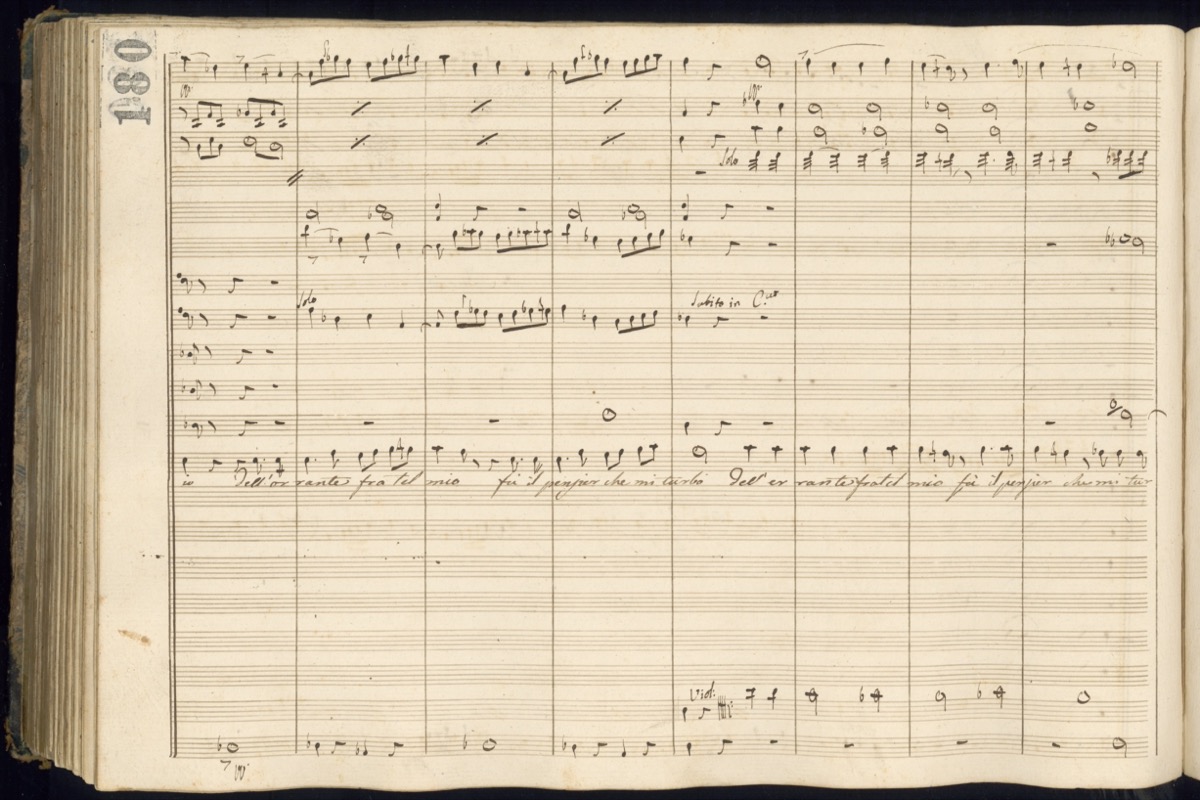 180
Solo
Solo
Subito in C.
io Dell'er rante fratel mio fu il pensier che mi turbò Dell'er rante fratel mio fu il pensier che mi tur
Viol: